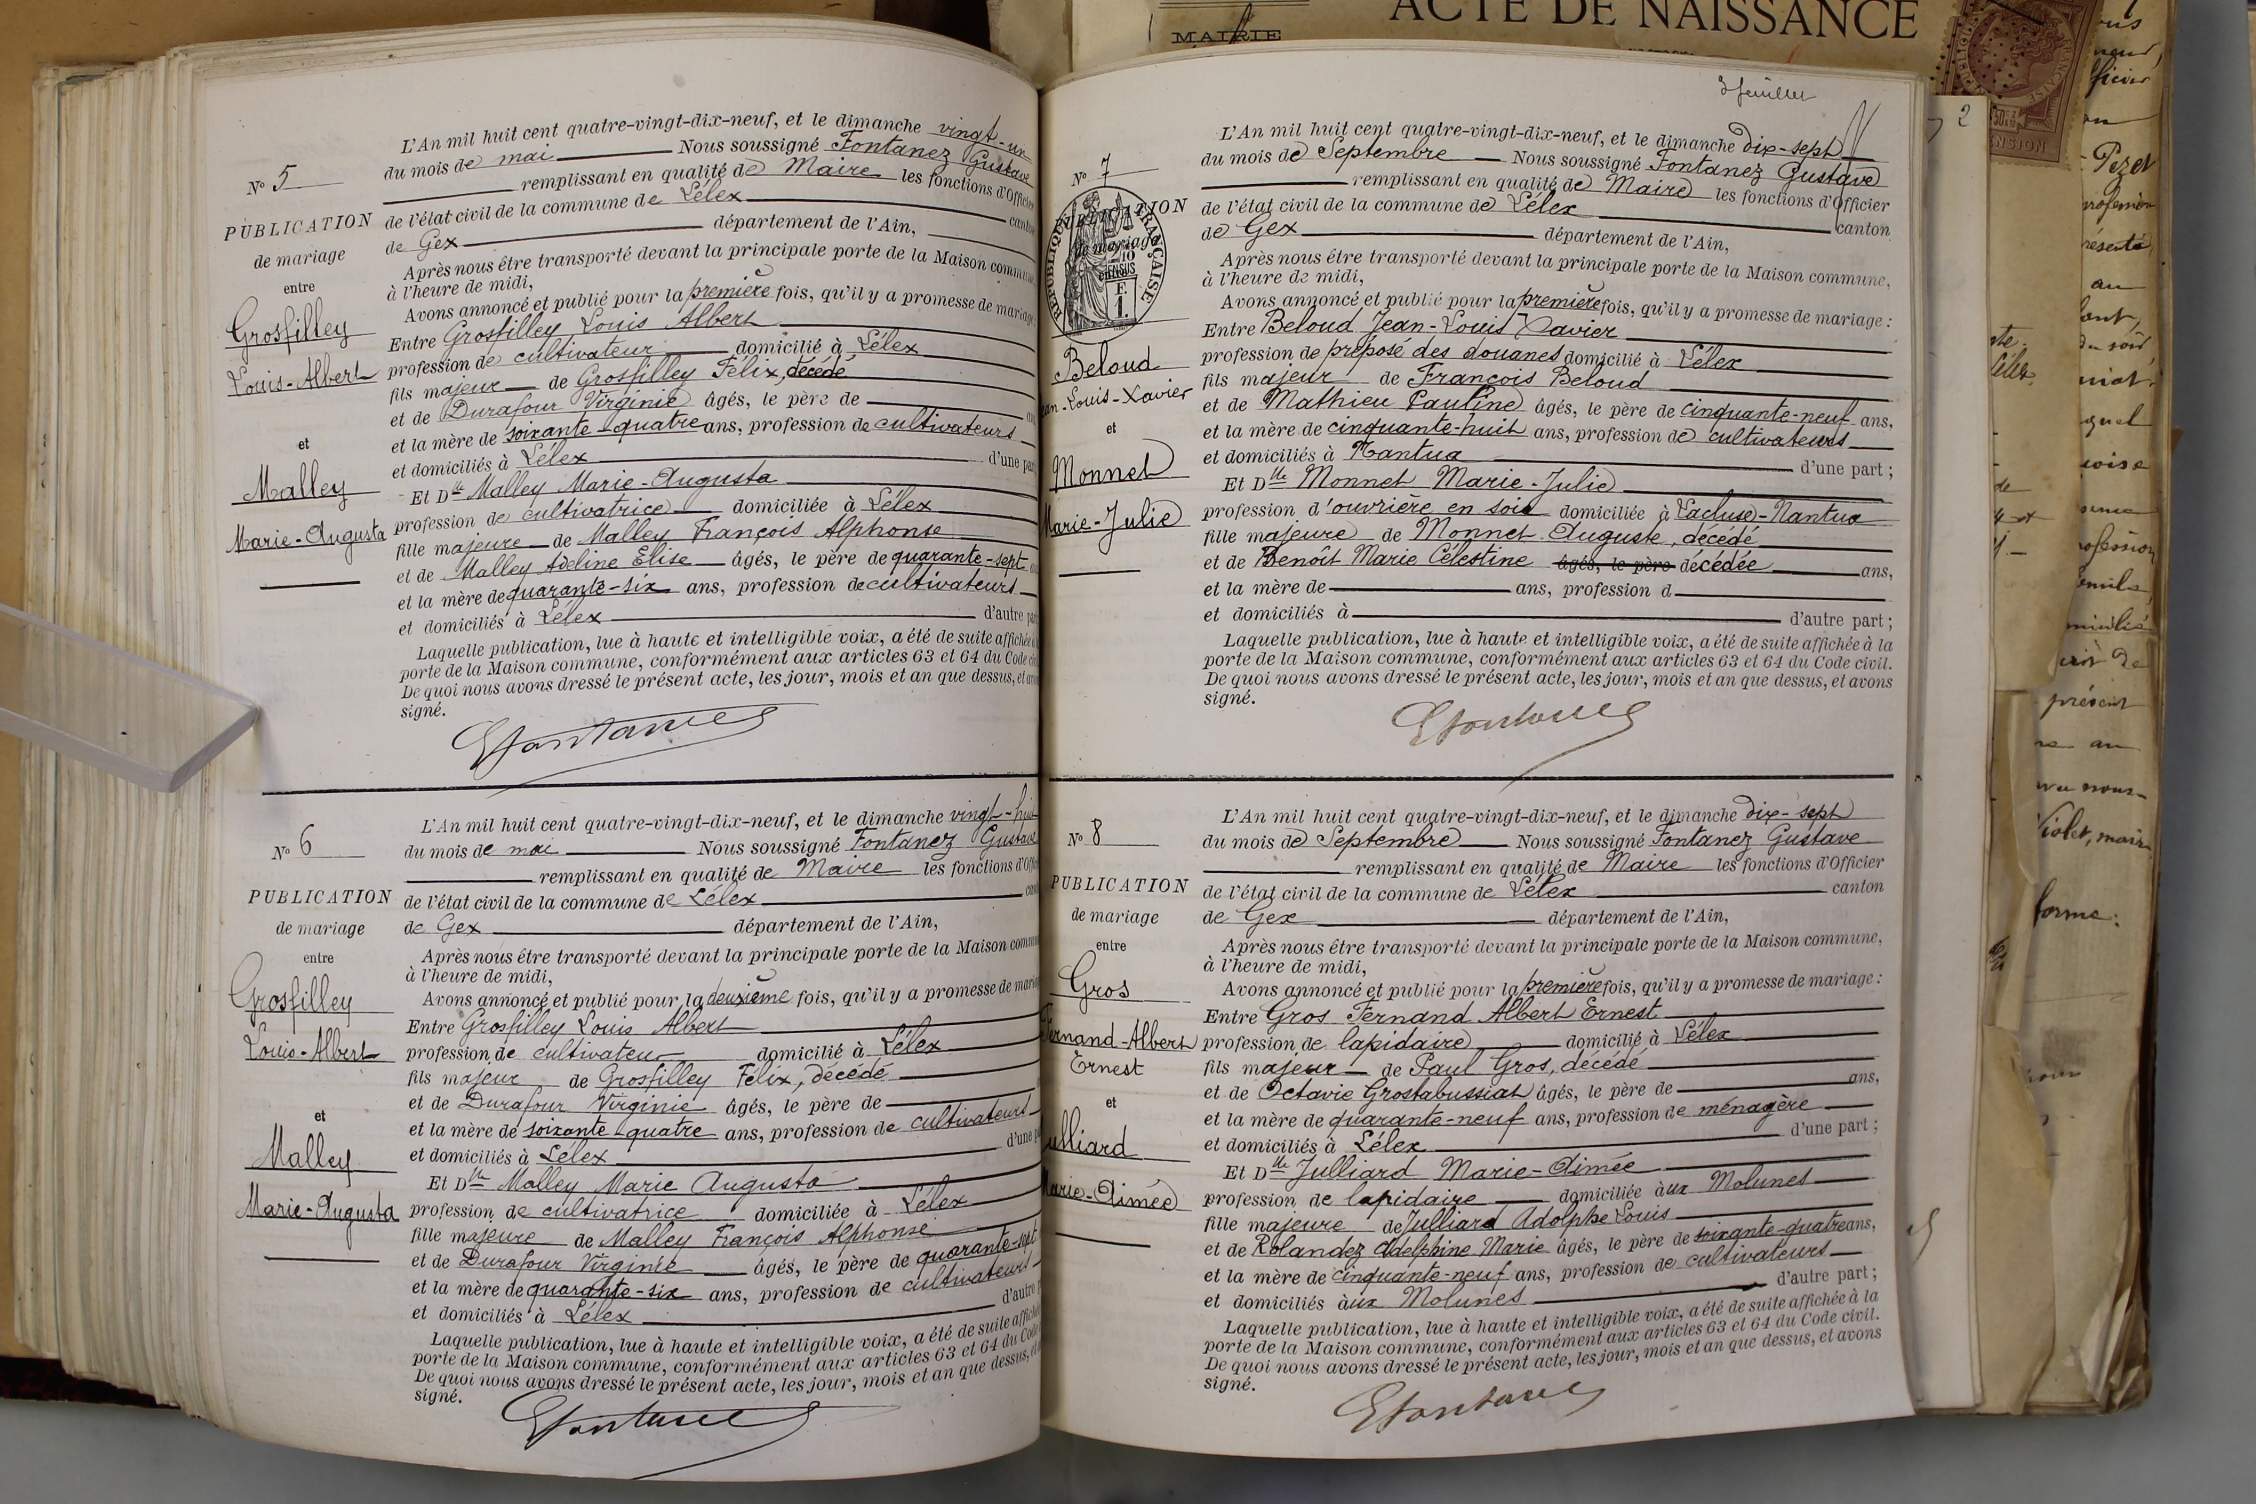 ACTE DE NAISSANCE
MAIRIE
3 feuillet
L'An mil huit cent quatre-vingt-dix-neuf, et le dimanche vingt-un
du mois de mai Nous soussigné Fontanez Gustave
N° 5
remplissant en qualité de Maire les fonctions d'Officier
PUBLICATION
de l'état civil de la commune de Lélex canton
de mariage
de Gex département de l'Ain,
entre
Après nous être transporté devant la principale porte de la Maison commune,
à l'heure de midi,
Avons annoncé et publié pour la première fois, qu'il y a promesse de mariage :
Grosfilley
Entre Grosfilley Louis Albert
Louis-Albert
profession de cultivateur domicilié à Lélex
fils majeur de Grosfilley Félix, décédé
et de Durafour Virginie âgés, le père de
et
et la mère de soixante-quatre ans, profession de cultivateurs
et domiciliés à Lélex d'une part
Malley
Et Dlle Malley Marie-Augusta
Marie-Augusta
profession de cultivatrice domiciliée à Lélex
fille majeure de Malley François Alphonse
et de Malley Adeline Elise âgés, le père de quarante-sept
et la mère de quarante-six ans, profession de cultivateurs
et domiciliés à Lélex d'autre part
Laquelle publication, lue à haute et intelligible voix, a été de suite affichée à la
porte de la Maison commune, conformément aux articles 63 et 64 du Code civil
De quoi nous avons dressé le présent acte, les jour, mois et an que dessus, et avons
signé.
GFontanez
L'An mil huit cent quatre-vingt-dix-neuf, et le dimanche vingt-huit
N° 6
du mois de mai Nous soussigné Fontanez Gustave
remplissant en qualité de Maire les fonctions d'Officier
PUBLICATION
de l'état civil de la commune de Lélex canton
de mariage
de Gex département de l'Ain,
entre
Après nous être transporté devant la principale porte de la Maison commune
à l'heure de midi,
Grosfilley
Avons annoncé et publié pour la deuxième fois, qu'il y a promesse de mariage
Entre Grosfilley Louis Albert
Louis-Albert
profession de cultivateur domicilié à Lélex
fils majeur de Grosfilley Félix, décédé
et de Durafour Virginie âgés, le père de
et
et la mère de soixante-quatre ans, profession de cultivateurs
et domiciliés à Lélex d'une part
Malley
Et Dlle Malley Marie Augusta
Marie-Augusta
profession de cultivatrice domiciliée à Lélex
fille majeure de Malley François Alphonse
et de Durafour Virginie âgés, le père de quarante-sept
et la mère de quarante-six ans, profession de cultivateurs
et domiciliés à Lélex d'autre
Laquelle publication, lue à haute et intelligible voix, a été de suite affichée
porte de la Maison commune, conformément aux articles 63 et 64 du Code
De quoi nous avons dressé le présent acte, les jour, mois et an que dessus, et
signé.
GFontanez
L'An mil huit cent quatre-vingt-dix-neuf, et le dimanche dix-sept
N° 7
du mois de Septembre Nous soussigné Fontanez Gustave
remplissant en qualité de Maire les fonctions d'Officier
PUBLICATION
de l'état civil de la commune de Lélex canton
de mariage
RÉPUBLIQUE FRANÇAISE
2/10 EN SUS
F. 1.
de Gex département de l'Ain,
Après nous être transporté devant la principale porte de la Maison commune,
à l'heure de midi,
Avons annoncé et publié pour la première fois, qu'il y a promesse de mariage :
Entre Beloud Jean-Louis Xavier
Beloud
profession de préposé des douanes domicilié à Lélex
Jean-Louis-Xavier
fils majeur de François Beloud
et de Mathieu Pauline âgés, le père de cinquante-neuf ans,
et
et la mère de cinquante-huit ans, profession de cultivateurs
et domiciliés à Nantua d'une part ;
Monnet
Et Dlle Monnet Marie-Julie
Marie-Julie
profession d'ouvrière en soie domiciliée à Lacluse-Nantua
fille majeure de Monnet Auguste, décédé
et de Benoît Marie Célestine âgés, le père décédée ans,
et la mère de ans, profession d
et domiciliés à d'autre part ;
Laquelle publication, lue à haute et intelligible voix, a été de suite affichée à la
porte de la Maison commune, conformément aux articles 63 et 64 du Code civil.
De quoi nous avons dressé le présent acte, les jour, mois et an que dessus, et avons
signé.
GFontanez
L'An mil huit cent quatre-vingt-dix-neuf, et le dimanche dix-sept
N° 8
du mois de Septembre Nous soussigné Fontanez Gustave
remplissant en qualité de Maire les fonctions d'Officier
PUBLICATION
de l'état civil de la commune de Lélex canton
de mariage
de Gex département de l'Ain,
entre
Après nous être transporté devant la principale porte de la Maison commune,
à l'heure de midi,
Gros
Avons annoncé et publié pour la première fois, qu'il y a promesse de mariage :
Entre Gros Fernand Albert Ernest
Fernand-Albert
profession de lapidaire domicilié à Lélex
Ernest
fils majeur de Paul Gros, décédé
et de Octavie Grostabussiat âgés, le père de ans,
et
et la mère de quarante-neuf ans, profession de ménagère
et domiciliés à Lélex d'une part ;
Julliard
Et Dlle Julliard Marie-Aimée
Marie-Aimée
profession de lapidaire domiciliée aux Molunes
fille majeure de Julliard Adolphe Louis
et de Rolandez Adelphine Marie âgés, le père de soixante-quatre ans,
et la mère de cinquante-neuf ans, profession de cultivateurs
et domiciliés àux Molunes d'autre part ;
Laquelle publication, lue à haute et intelligible voix, a été de suite affichée à la
porte de la Maison commune, conformément aux articles 63 et 64 du Code civil.
De quoi nous avons dressé le présent acte, les jour, mois et an que dessus, et avons
signé.
GFontanez
2
Pezet
au
présent
Violet, maire
forme: